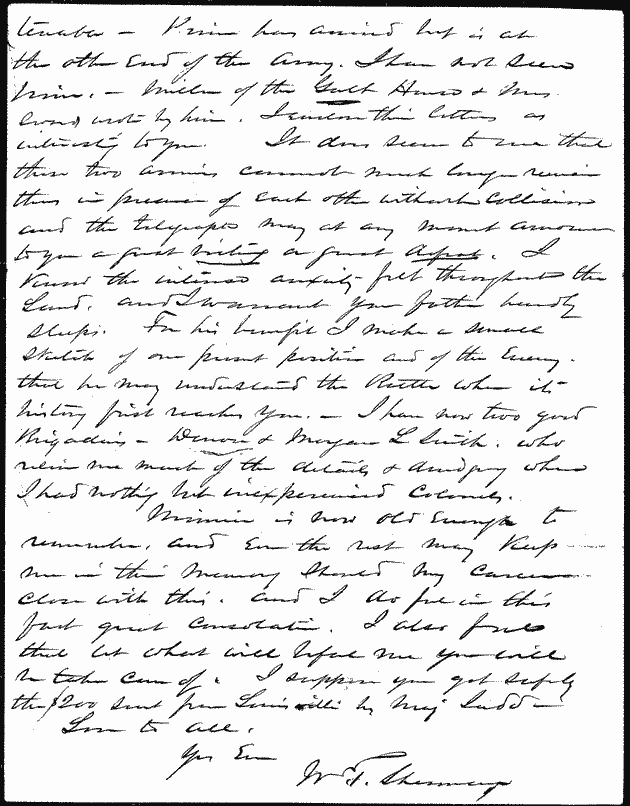 tenable — Prime has arrived but is at
the other End of the Army. I have not seen
him. — Miller of the Galt House & Mrs.
wrote by him. I enclose their letters as
interesting to you. It does seem to me that
these two armies cannot much longer remain
thus in presence of each other without Collision
and the telegraph may at any moment announce
to you a great victory or great defeat. I
know the intense anxiety felt throughout the
Land, and I warrant your father hardly
sleeps. For his benefit I make a small
sketch of our present position and of the Enemy.
that he may understand the Battle when its
history first reaches you. — I have now two good
Brigadiers — Denver & Morgan L Smith. who
relieve me much of the details & drudgery when
I had nothing but inexperienced Colonels.
Minnie is now old Enough to
remember, and Even the rest may Keep
me in their memory should my Career
close with this. and I do feel in this
fact great Consolation. I also feel
that let what will befal me you will
be taken care of. I suppose you got safely
the $200 sent from Louisville by Maj Judd —
Love to all.
Yrs Ever
W. T. Sherman